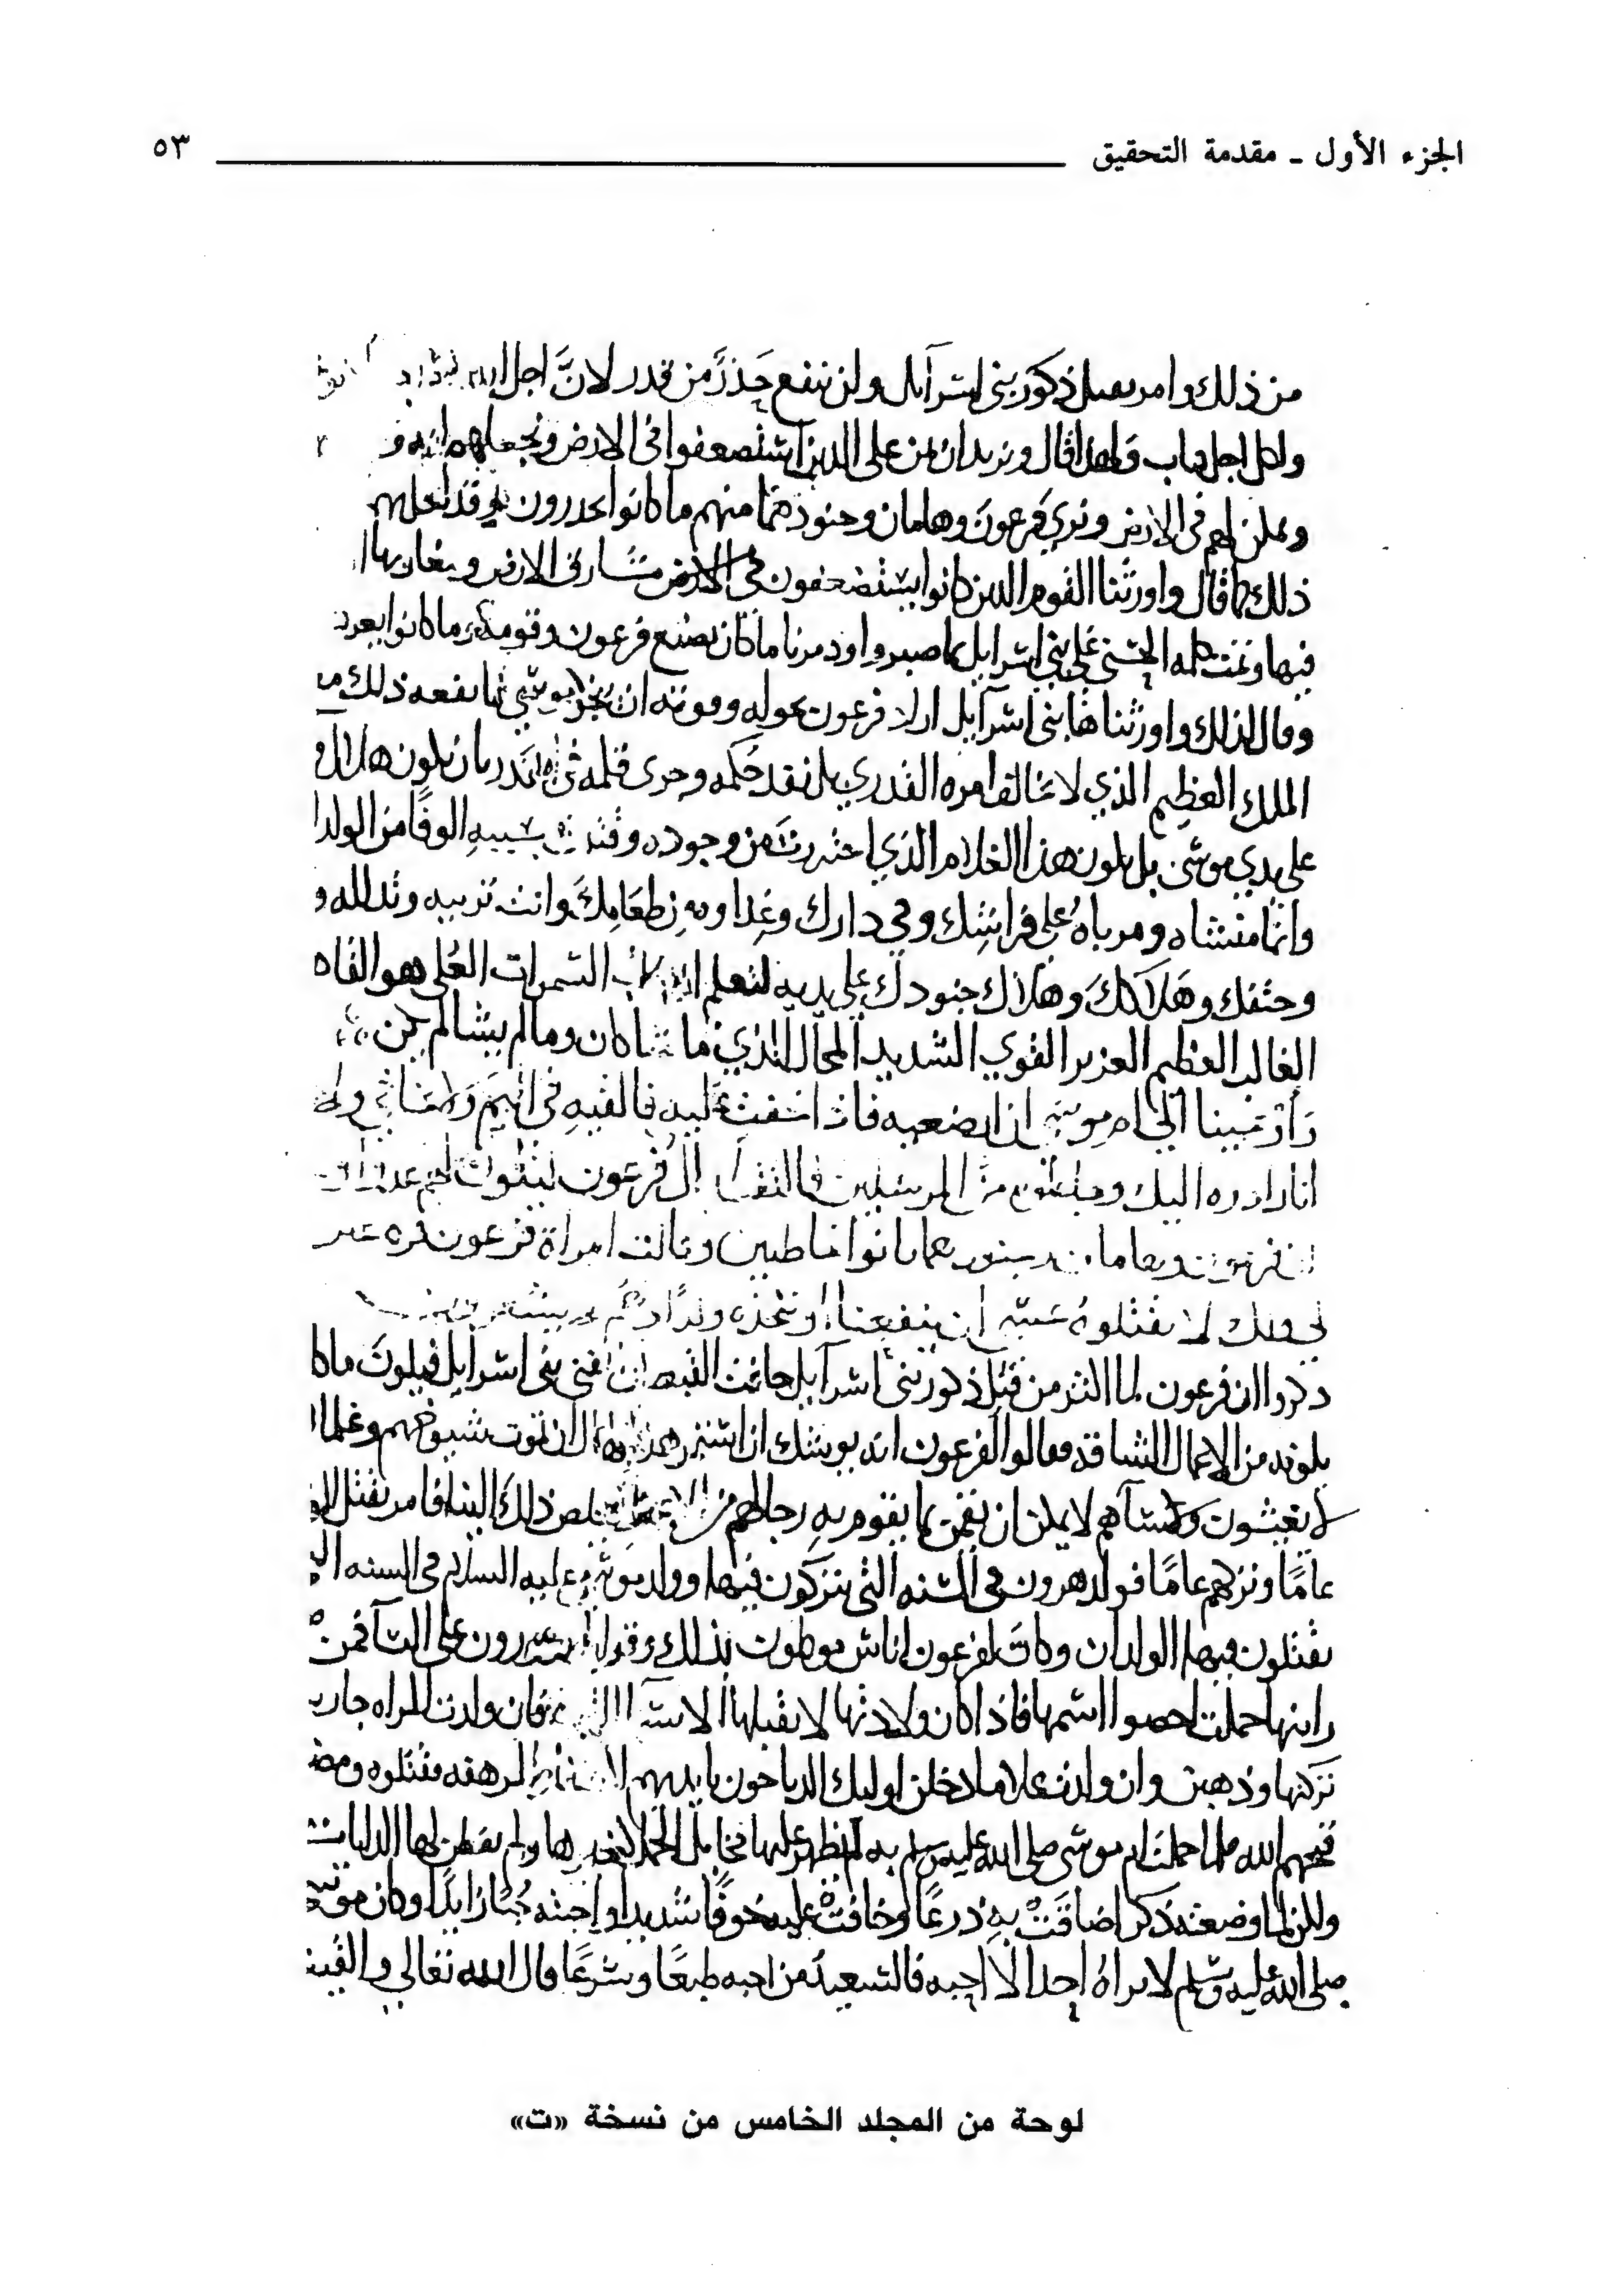 الجزء الأول ـ مقدمة التحقيق ٥٣
من ذلك وامر بقتل ذكور بني اسرآيل ولن ينفع حَذرٌ من قدر لانَّ اجل الله
ولكل اجل كتاب ولهذا قال ونريد ان نمن على الذين استضعفوا في الارض ونجعلهم ايمه و
ونمكن لهم في الارض ونري فرعون وهامان وجنودهما منهم ما كانوا يحذرون وقد فعل بهم
ذلك كما قال واورثنا القوم الذين كانوا يستضعفون في الارض مشارق الارض ومغاربها
فيها وتمت كلمه الحسنى على بني اسرايل بما صبروا ودمرنا ما كان يصنع فرعون وقومه وما كانوا يعر
وقال كذلك واورثناها بني اسرآيل اراد فرعون بحوله وقوته ان ينجو من موسى فما نفعه ذلك
الملك العظيم الذي لا يخالف امره القدري بل نفذ حُكمه وجرى قلمه في بان يكون هلا
على يدي موسى بل يكون هذا الغلام الذي احترزت من وجوده وقتلت بسببهِ الوفًا من الولدا
وانما منشاه ومرباهُ على فراشِك وفي دارك وغِداوه من طعَامِكَ وانت تربيه وتدلله و
وحتفك وهَلاكَكَ وهلاك جنودك على يديه لتعلم ان رب السموات العُلى هو القاه
الغالب العظيم العزيز القوي الشديد المحال الذي ما شا كان وما لم يشا لم يكن
وَاوْحَينا الى ام موسى ان ارضعيه فاذا خفتِ عليه فالقيهِ في اليَم وَلا تخافي ولا
انا رادوه اليك وجاعلوه من المرسلين فالتقطه ال فرعون ليكون لهم عدوا
ان فرعون وهامان وجنودهما كانوا خاطيين وقالت امراة فرعون قره عين
لي ولك لا تقتلوهُ عسى ان ينفعنا او نتخذه ولدًا وهُم لا يشعرون
ذكروا ان فرعون لما اكثر من قتلِ ذكور بني اسرآيل خافت القبط ان يفني بني اسرآيل فيلونَ ما كا
يلونه من الاعمال الشاقه فقالوا لفرعون انه يوشك ان استمر هذا الحال ان تموت شيوخهم وغلما
لا يعيشون ونسآهم لا يمكن ان يقمن بما يقوم بهِ رجالهم من الاعمال فيخلص ذلكَ الينا فامر بقتل الو
عامًا وتركهم عامًا فولد هرون في السنه التي يتركون فيها وولد موسى عليه السلام في السنه ال
يقتلون فيها الولدان وكان لفرعون اناس موكلون بذلك وقوابل يدورون على النسآ فمنْ
راينها حملت احصوا اسمها فاذا كان ولادتها لا يقبلها الا نسآ فان ولدت المراه جاريـ
تركنها وذهبن وان ولدت غلاما دخلن اوليك الذباحون بايديهم الشفار المرهفه فقتلوه ومض
قبحهم الله فلما حملت ام موسى صلى الله عليه وسلم به لم يظهر عليها مخايل الحمل كغيرها ولم يفطن لها الدايات
ولكن لما وضعته ذكرا ضاقَتْ بهِ ذرعًا وخافتْ عليه خوفًا شديدا واحبته حُبًا زايدًا وكان موسى
صلى الله عليه وسلم لا يراهُ احدٌ الا احبه فالسعيدُ من احبه طبعًا وشرعًا قال الله تعالى والقيت
لوحة من المجلد الخامس من نسخة «ت»